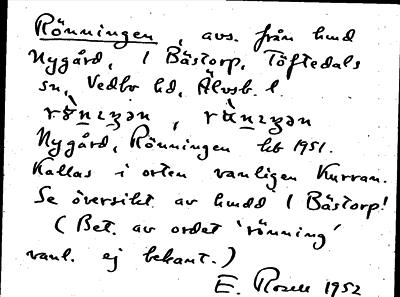 Rönningen, avs. från hmd
Nygård, 1 Bästorp, Töftedals
sn, Vedbo hd, Älvsb. l.
Nygård, Rönningen hb 1951.
Kallas i orten vanligen Kurran.
Se översikt av hmdd 1 Bästorp!
(Bet. av ordet 'rönning'
vanl. ej bekant.)
E. Rosell 1952